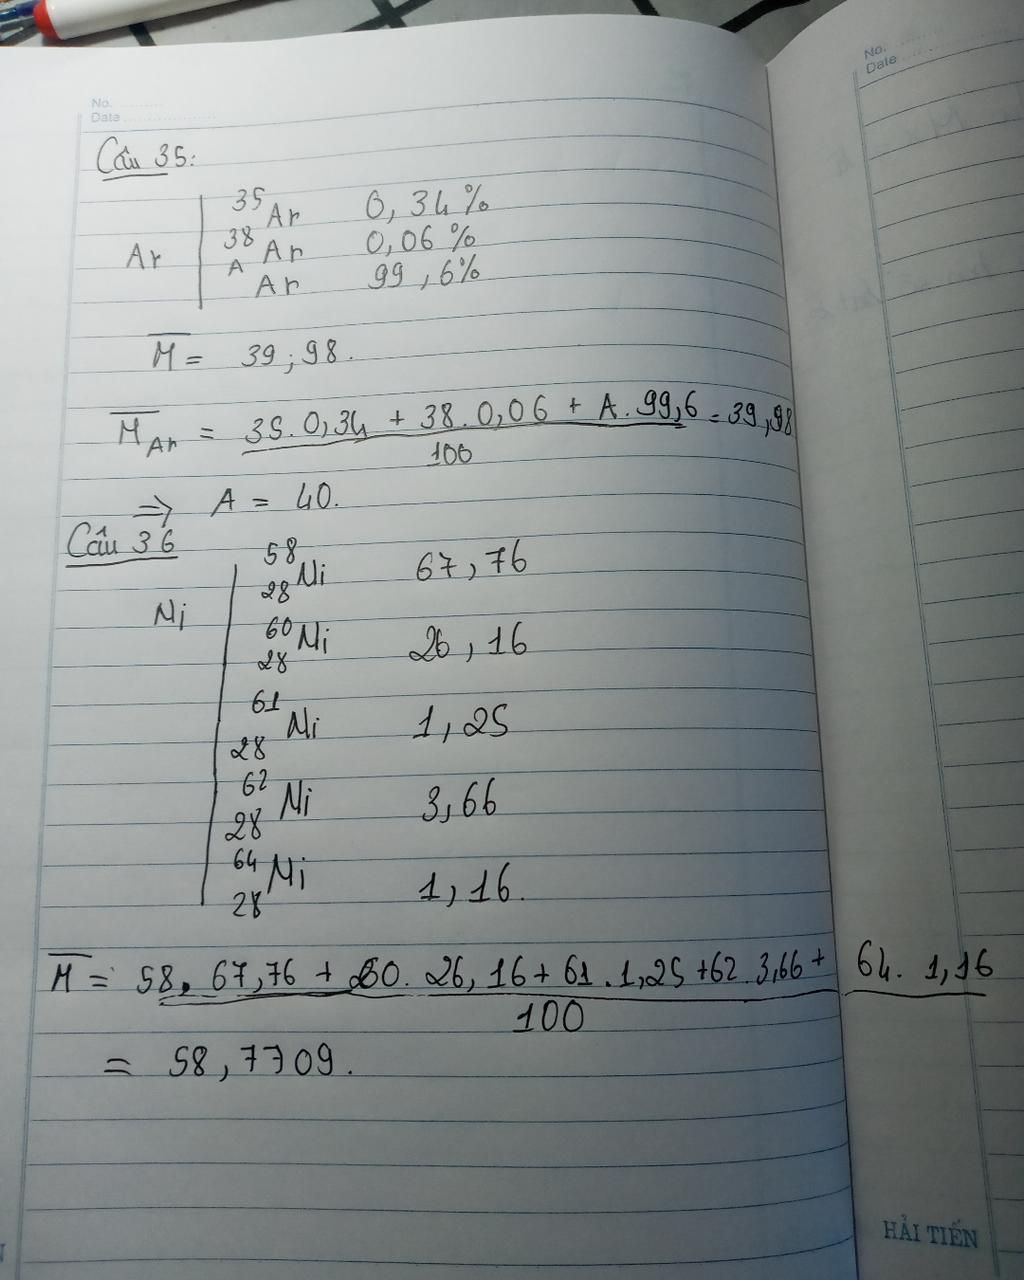 No. ............
Date ......................
No. ............
Date
Câu 35:
35 Ar 0,34%
Ar 38 Ar 0,06%
A Ar 99,6%
M = 39,98.
M Ar = 35.0,34 + 38.0,06 + A.99,6 = 39,98
100
⇒ A = 40.
Câu 36
58 28 Ni 67,76
Ni
60 28 Ni 26,16
61 28 Ni 1,25
62 28 Ni 3,66
64 28 Ni 1,16.
M = 58.67,76 + 60.26,16 + 61.1,25 + 62.3,66 + 64.1,16
100
= 58,7709.
HẢI TIẾN